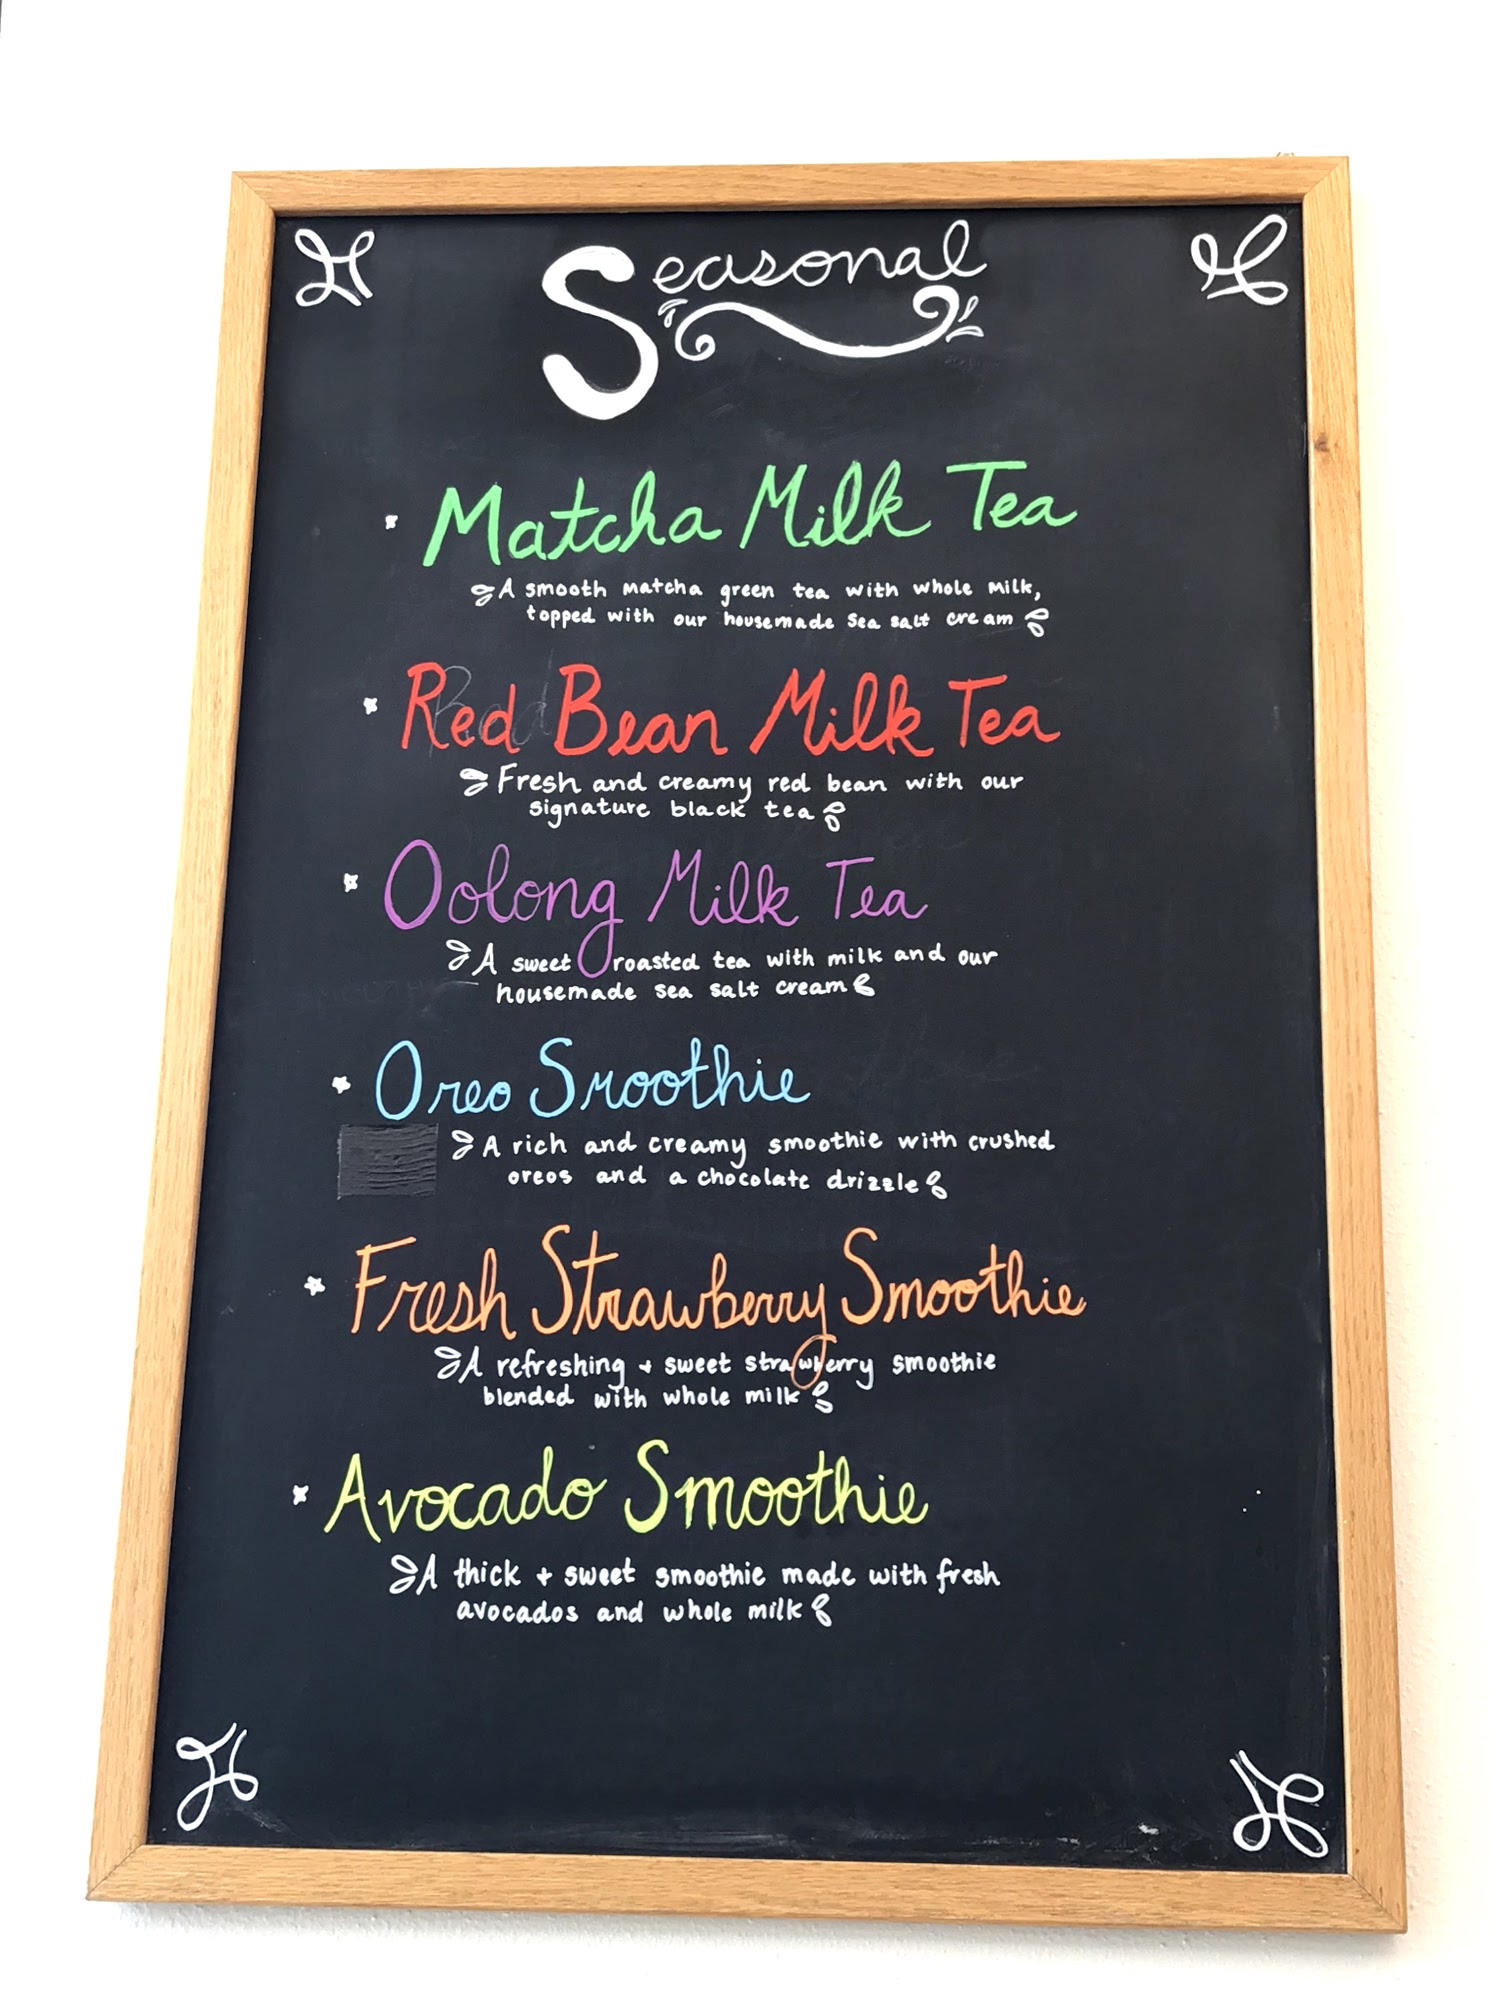 Seasonal
Matcha Milk Tea
A smooth matcha green tea with whole milk,
topped with our housemade sea salt cream
Red Bean Milk Tea
Fresh and creamy red bean with our
signature black tea
Oolong Milk Tea
A sweet roasted tea with milk and our
housemade sea salt cream
Oreo Smoothie
A rich and creamy smoothie with crushed
oreos and a chocolate drizzle
Fresh Strawberry Smoothie
A refreshing + sweet strawberry smoothie
blended with whole milk
Avocado Smoothie
A thick + sweet smoothie made with fresh
avocados and whole milk